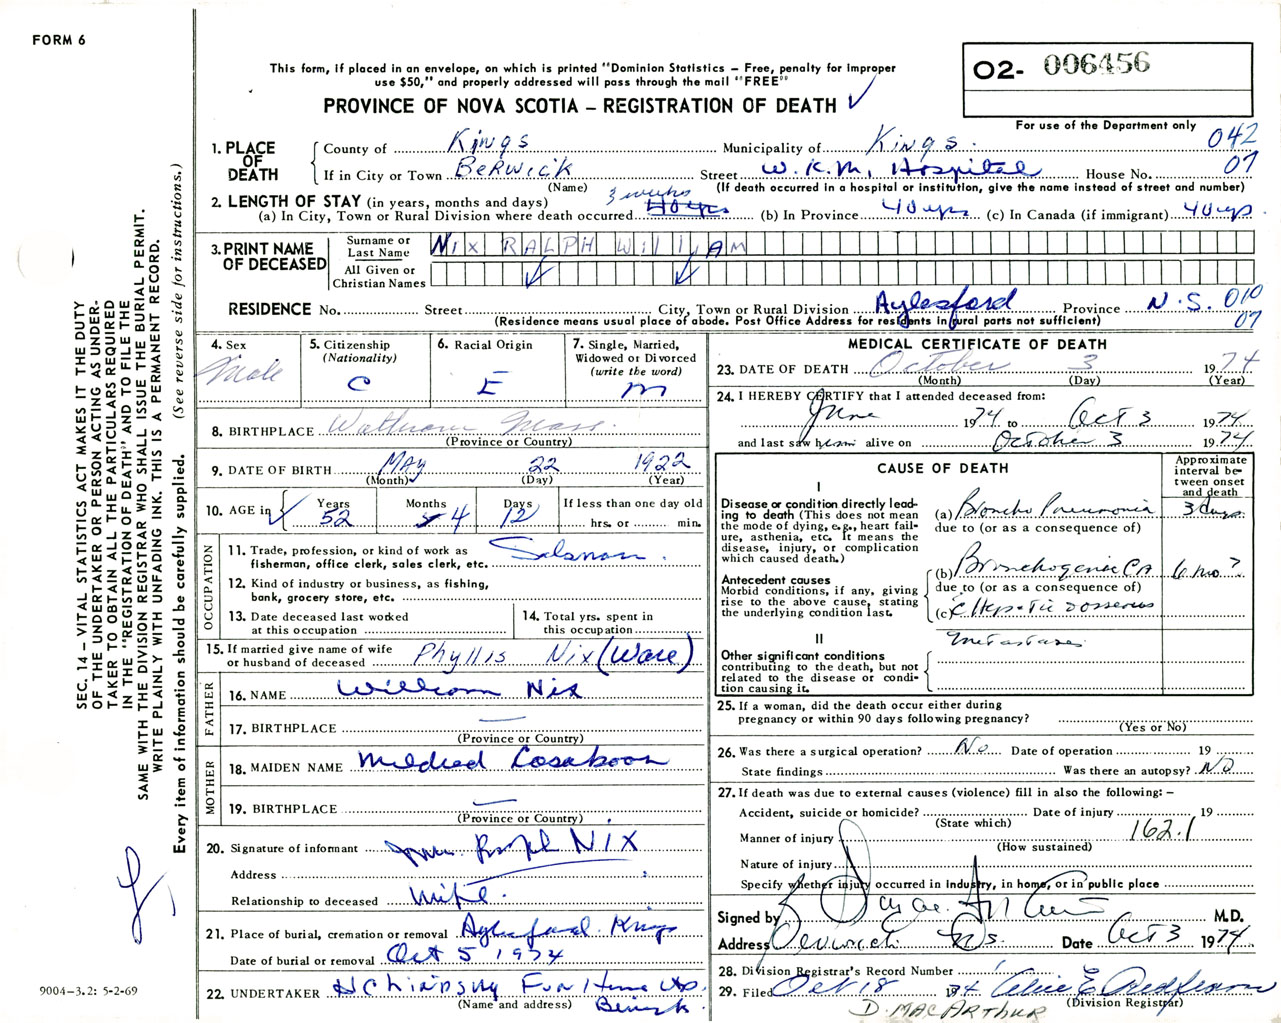 FORM 6
This form, if placed in an envelope, on which is printed "Dominion Statistics – Free, penalty for improper
use $50," and properly addressed will pass through the mail "FREE"
PROVINCE OF NOVA SCOTIA – REGISTRATION OF DEATH
02- 006456
For use of the Department only
042
07
1. PLACE OF DEATH
County of Kings Municipality of Kings
If in City or Town BERWICK Street W.K.M. Hospital House No.
(Name) (If death occurred in a hospital or institution, give the name instead of street and number)
2. LENGTH OF STAY (in years, months and days) 3 weeks
(a) In City, Town or Rural Division where death occurred 40 yrs (b) In Province 40 yrs (c) In Canada (if immigrant) 40 yrs
3. PRINT NAME OF DECEASED
Surname or Last Name NIX RALPH WILLIAM
All Given or Christian Names
RESIDENCE No. Street City, Town or Rural Division Aylesford Province N.S. 010
07
(Residence means usual place of abode. Post Office Address for residents in rural parts not sufficient)
4. Sex Male
5. Citizenship (Nationality) C
6. Racial Origin E
7. Single, Married, Widowed or Divorced (write the word) M
8. BIRTHPLACE Waltham Mass.
(Province or Country)
9. DATE OF BIRTH MAY 22 1922
(Month) (Day) (Year)
10. AGE in Years 52 Months 4 Days 12 If less than one day old hrs. or min.
OCCUPATION
11. Trade, profession, or kind of work as
fisherman, office clerk, sales clerk, etc. Salsman.
12. Kind of industry or business, as fishing,
bank, grocery store, etc.
13. Date deceased last worked
at this occupation
14. Total yrs. spent in
this occupation
15. If married give name of wife
or husband of deceased Phyllis Nix (Ware)
FATHER
16. NAME William Nix
17. BIRTHPLACE —
(Province or Country)
MOTHER
18. MAIDEN NAME Mildred Casaboon
19. BIRTHPLACE —
(Province or Country)
20. Signature of informant Mrs. Ralph NIX
Address
Relationship to deceased
21. Place of burial, cremation or removal Aylesford Kings
Date of burial or removal Oct 5 1974
22. UNDERTAKER Fun Home
(Name and address) Berwick
MEDICAL CERTIFICATE OF DEATH
23. DATE OF DEATH October 3 1974
(Month) (Day) (Year)
24. I HEREBY CERTIFY that I attended deceased from:
June 1974 to Oct 3 1974
and last saw him alive on October 3 1974
CAUSE OF DEATH
Approximate interval between onset and death
I
Disease or condition directly leading to death (This does not mean the mode of dying, e.g., heart failure, asthenia, etc. It means the disease, injury, or complication which caused death.)
(a) Broncho Pneumonia 3 days
due to (or as a consequence of)
Antecedent causes
Morbid conditions, if any, giving rise to the above cause, stating the underlying condition last.
(b) Bronchogenic CA 6 mo?
due to (or as a consequence of)
(c) c Hepatic Osseous
metastases
II
Other significant conditions contributing to the death, but not related to the disease or condition causing it.
25. If a woman, did the death occur either during
pregnancy or within 90 days following pregnancy?
(Yes or No)
26. Was there a surgical operation? No Date of operation 19
State findings Was there an autopsy? NO
27. If death was due to external causes (violence) fill in also the following: –
Accident, suicide or homicide? Date of injury 19
(State which)
Manner of injury 162.1
(How sustained)
Nature of injury
Specify whether injury occurred in industry, in home, or in public place
Signed by M.D.
Address Berwick NS. Date Oct 3 1974
28. Division Registrar's Record Number
29. Filed Oct 18 74 Alice E Redferson
(Division Registrar)
D. MACARTHUR
SEC. 14 – VITAL STATISTICS ACT MAKES IT THE DUTY
OF THE UNDERTAKER OR PERSON ACTING AS UNDER-
TAKER TO OBTAIN ALL THE PARTICULARS REQUIRED
IN THE "REGISTRATION OF DEATH" AND TO FILE THE
SAME WITH THE DIVISION REGISTRAR WHO SHALL ISSUE THE BURIAL PERMIT.
WRITE PLAINLY WITH UNFADING INK. THIS IS A PERMANENT RECORD.
Every item of information should be carefully supplied. (See reverse side for instructions.)
9004-3.2: 5-2-69